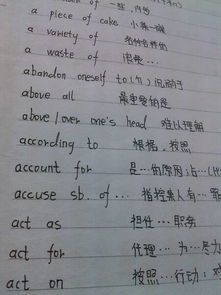 of 一些,
a piece of cake 小菜一碟
a variety of 各种各样的
a waste of 浪费...
abandon oneself to (介) 沉溺于
above all 最重要的是
above / over one's head 难以理解
according to 根据,按照
account for 是…的原因;占…
accuse sb. of ... 指控某人有…罪
act as 担任…职务
act for 代理…为…尽力
act on 按照…行动;对